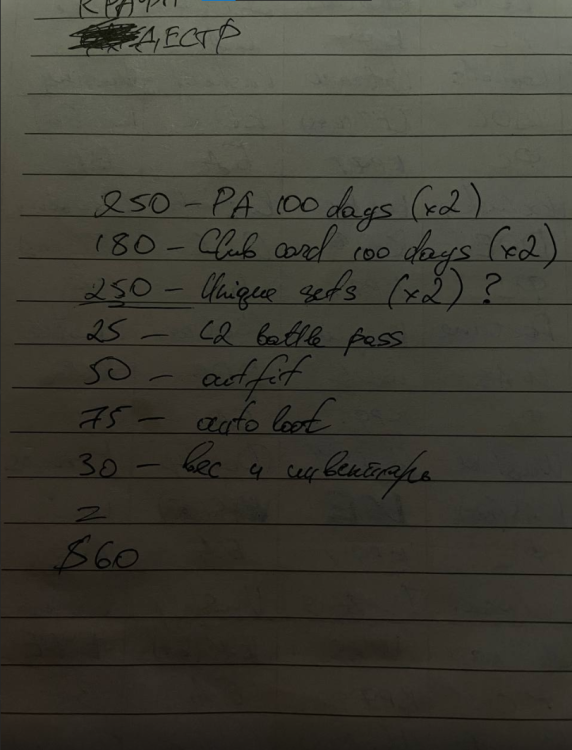 КРАФТ
ДЕСТР
250 – PA 100 days (x2)
180 – Club card 100 days (x2)
250 – Unique sets (x2) ?
25 – L2 battle pass
50 – outfit
75 – auto loot
30 – вес и инвентарь
=
$60